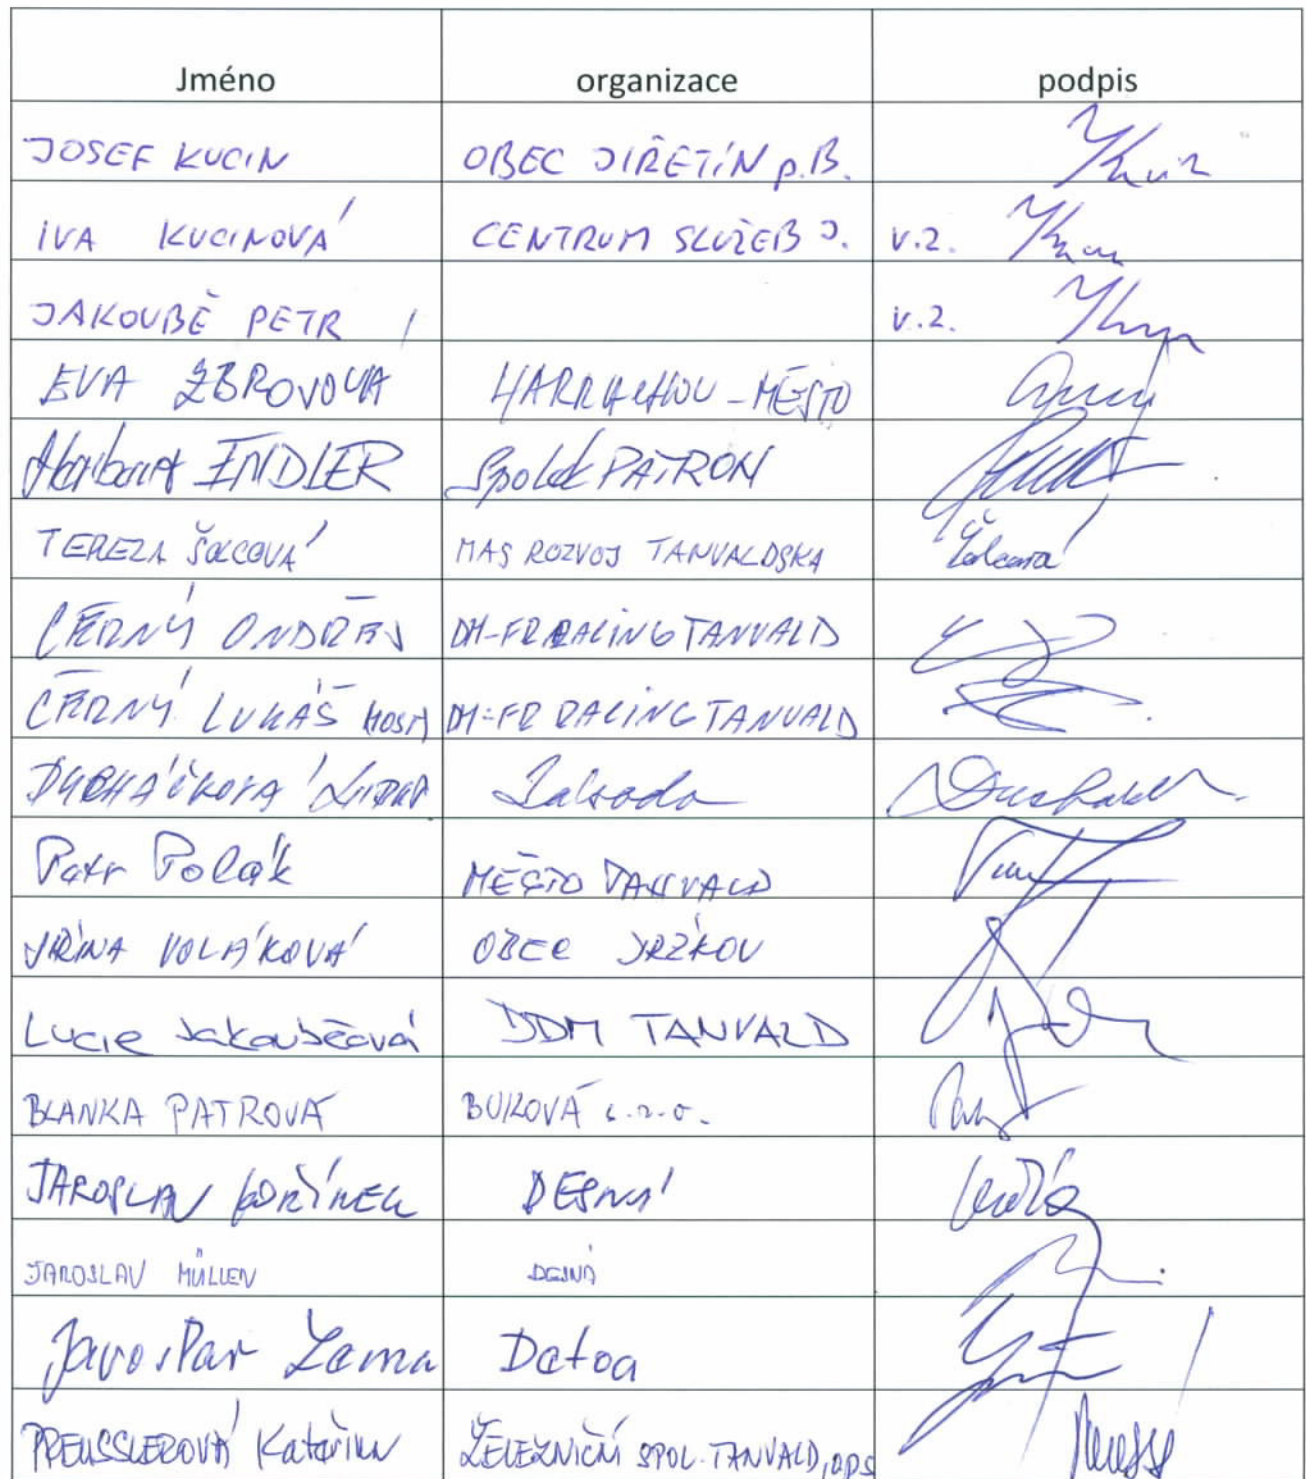 Jméno organizace podpis
JOSEF KUCIN OBEC JIŘETÍN p.B.
IVA KUCINOVÁ CENTRUM SLUŽEB J. v.z.
JAKOUBĚ PETR v.z.
EVA ZBROJOVÁ HARRACHOV - MĚSTO
Herbert ENDLER Spolek PATRON
TEREZA ŠOLCOVÁ MAS ROZVOJ TANVALDSKA Šolcová
ČERNÝ ONDŘEJ DH-FR RACING TANVALD
ČERNÝ LUKÁŠ HOST DH-FR RACING TANVALD
Zásada
Petr Polák MĚSTO TANVALD
JIŘINA VOLÁKOVÁ OBEC
Lucie Jakouběová DDM TANVALD
BLANKA PATROVÁ BUKOVÁ s.r.o.
JAROSLAV KOŘÍNEK DESNÁ
JAROSLAV MÜLLER DESNÁ
Jaroslav Zema Detoa
PREUSSLEROVÁ Kateřina ŽELEZNIČNÍ SPOL. TANVALD, OPS